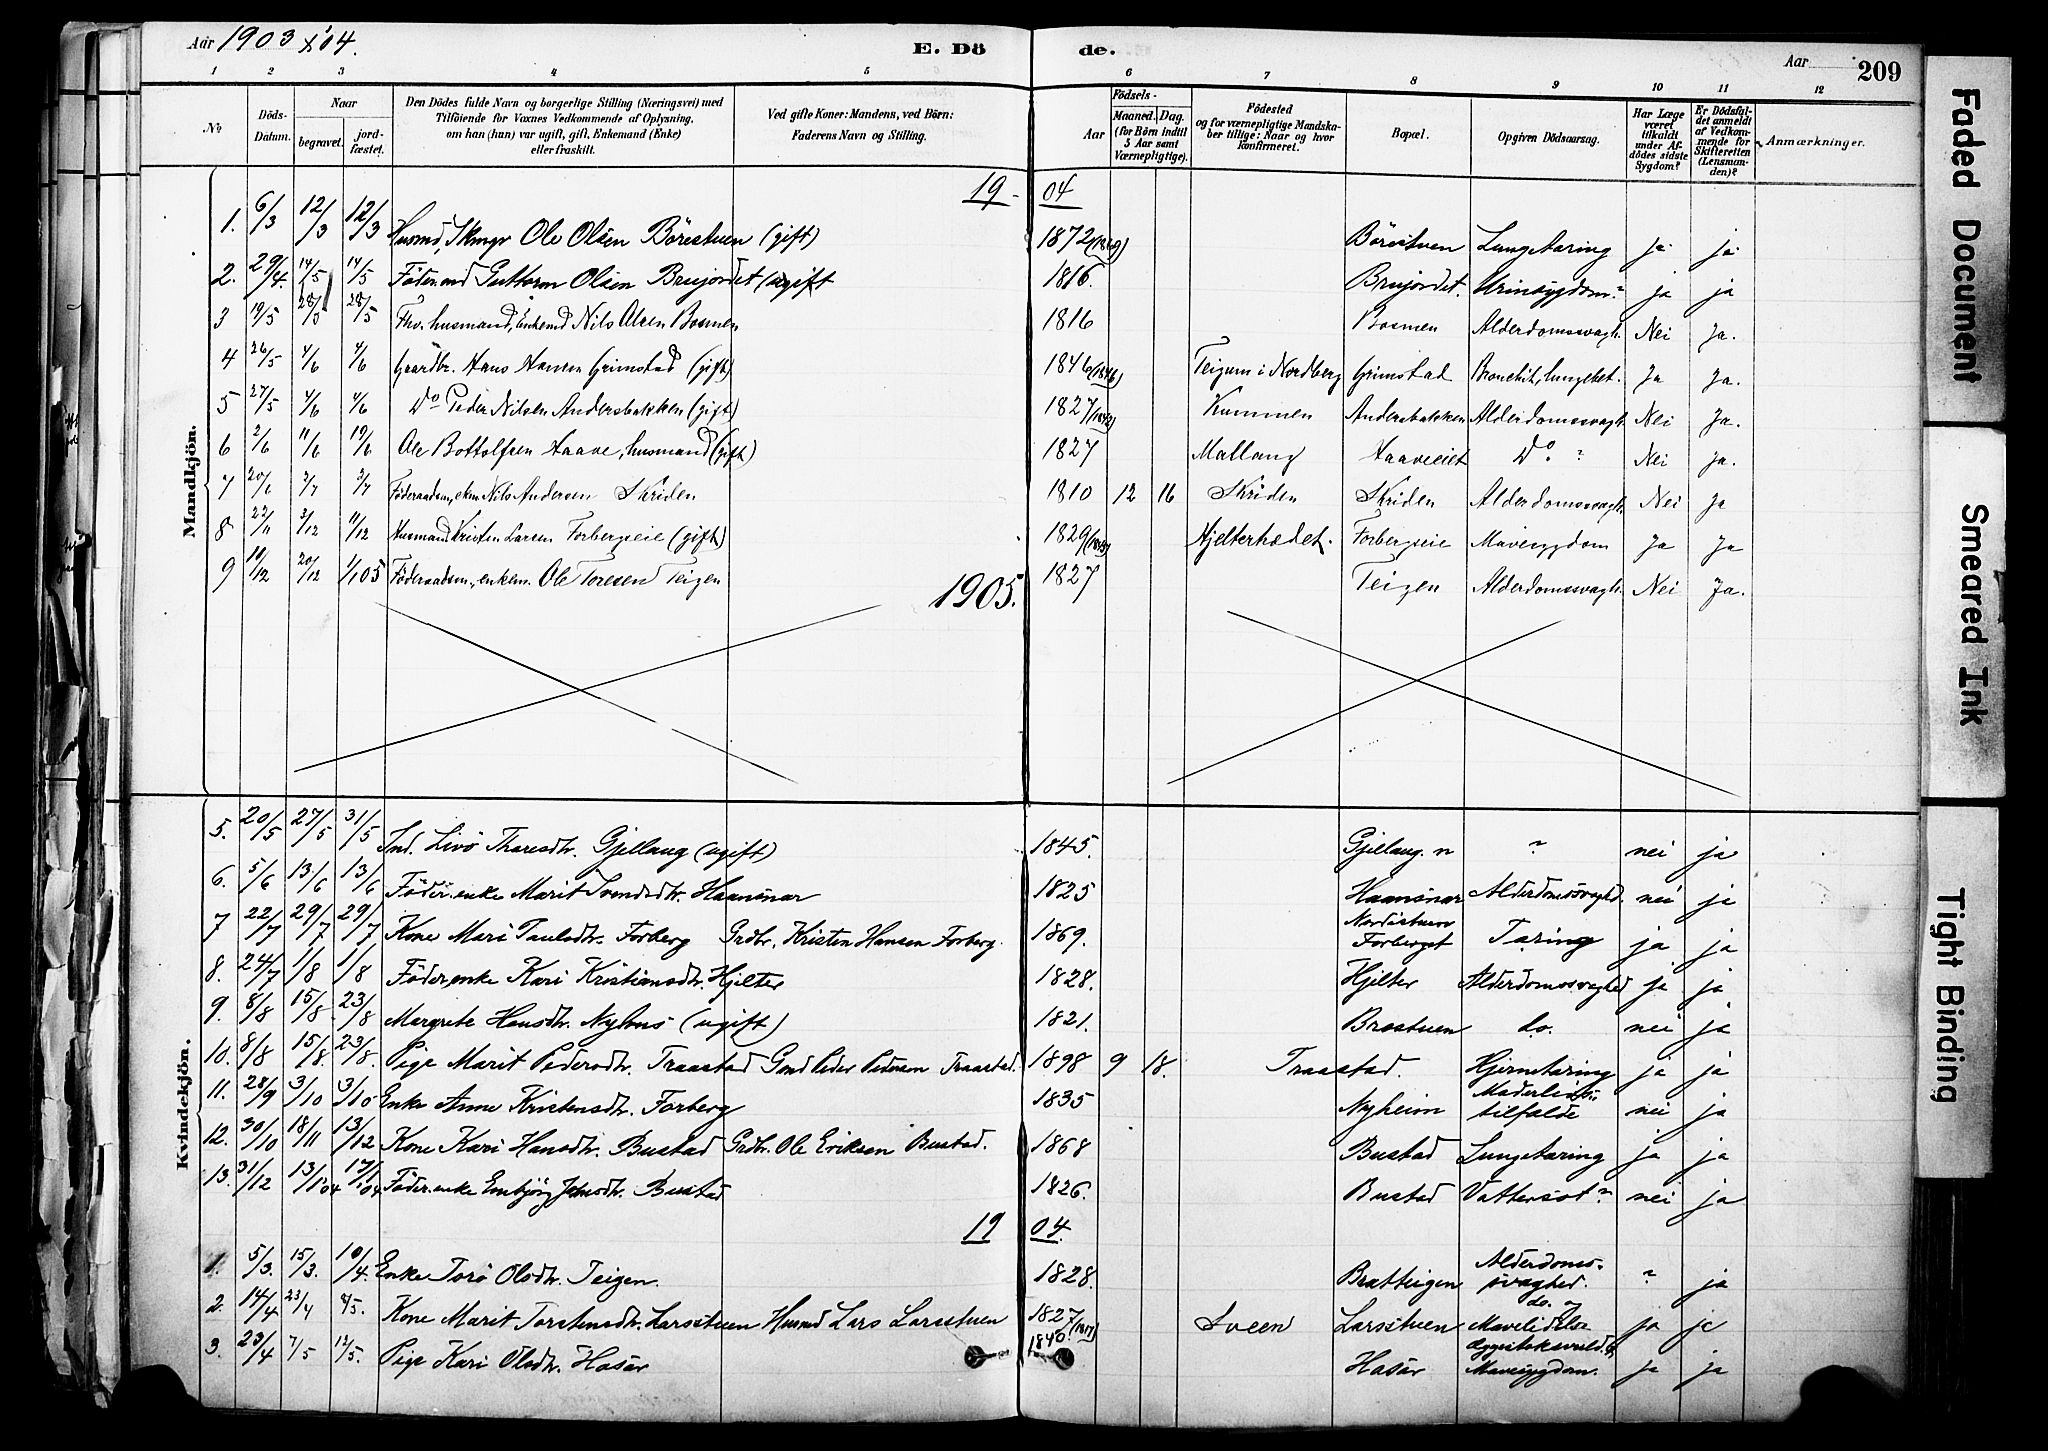 Aar 1903 & '04.
E. Dö de.
Aar
209
1 2 3 4 5 6 7 8 9 10 11 12
No
Döds-Datum.
Naar
begravet.
jordfæstet.
Den Dödes fulde Navn og borgerlige Stilling (Næringsvei) med Tilföiende for Voxnes Vedkommende af Oplysning, om han (hun) var ugift, gift, Enkemand (Enke) eller fraskilt.
Ved gifte Koner: Mandens, ved Börn: Faderens Navn og Stilling.
Födsels-
Aar
Maaned. Dag.
(for Börn indtil 5 Aar samt Værnepligtige).
Födested og for værnepligtige Mandskaber tillige: Naar og hvor konfirmeret.
Bopæl.
Opgiven Dödsaarsag.
Har Læge været tilkaldt under Afdödes sidste Sygdom?
Er Dödsfaldet anmeldt af Vedkommende for Skifteretten (Lensmanden)?
Anmærkninger.
Mandkjön.
19 - 04
1. 6/3 12/3 12/3 Husmd, Ole Olsen Börestuen (gift) 1872 (1869) Börestuen Lungetæring ja ja
2. 29/4 14/5 14/5 Föder.md Guttorm Olsen Brujordet (ugift 1816. Brujordet. Urinsygdom? ja ja
3 19/5 28/5 28/5 Fhv. husmand, Enkemd Nils Olsen Bosmen 1816 Bosmen Alderdomssvagh. Nei Ja.
4 26/5 4/6 4/6 Gaardbr. Hans Hansen Grimstad (gift) 1846 (1846) Teigum i Nordberg Grimstad Bronchit, lungebet. Ja Ja.
5 27/5 4/6 4/6 Do Peder Nilsen Andersbakken (gift) 1827 Kummen Andersbakken Alderdomssvagh Nei Ja.
6 2/6 11/6 19/6 Ole Bottolfsen Haave, husmand (gift) 1827 Mallang Haaveeiet Do. ? Nei Ja.
7 20/6 2/7 3/7 Föderaadsm, ekm. Nils Andersen Skriden 1810 12 16 Skriden Skriden Alderdomssvagh. Nei Ja
8 22/11 3/12 11/12 Husmand Kristen Larsen Forbergseie (gift) 1829 Hjelterhædet. Forbergseie Mavesygdom Ja Ja
9 10/12 20/12 1/1 05 Föderaadsm., enkem. Ole Toresen Teigen 1827 Teigen Alderdomssvagh. Nei Ja.
1905.
Kvindekjön.
5. 20/5 27/5 31/5 Ind. Livö Tharesdtr. Gjellaug (ugift) 1845. Gjellaug. n ? nei ja
6. 5/6 13/6 13/6 Föder.enke Marit Svendsdtr. Haansnar 1825 Haansnar Alderdomssvaghed nei ja
7 22/7 29/7 29/7 Kone Mari Paulsdtr. Forberg Grdbr. Kristen Hansen Forberg. 1869. Nordistuen Forberget Tæring ja ja
8. 24/7 1/8 1/8 Föder.enke Kari Kristiansdtr. Hjelter 1828. Hjelter Alderdomssvaghed ja ja
9. 8/8 15/8 23/8 Margrete Hansdtr. Nyhus (ugift) 1821. Bræstuen do. nei ja
10. 8/8 15/8. 23/8. Pige Marit Pedersdtr. Traastad Gmd Peder Pedersen Traastad. 1898 9 18. Traastad. Hjernetæring ja ja
11. 28/9 3/10 3/10 Enke Anne Kristensdtr. Forberg 1835 Nyheim tilfælde nei ja
12. 30/10 18/11 13/12 Kone Kari Hansdtr. Bustad Grdbr. Ole Eriksen Bustad. 1868 Bustad Lungetæring ja ja
13. 31/12 13/1 '04 17/1 '04 Föder.enke Embjörg Johnsdtr. Bustad 1826. Bustad Vattersot? nei ja
19 04.
1. 5/3. 15/3. 10/4. Enke Torö Olsdtr. Teigen. 1828. Bratteigen Alderdoms-svaghed. ? ja
2. 14/4 23/4 8/5. Kone Marit Torstensdtr. Larsstuen Husmd Lars Larsstuen 1827 (1817) Sveen Larsstuen do. og Mavelidelse ja ja
3. 23/4 7/5 12/5. Pige Kari Olsdtr. Hasär 1840. Hasär Mavesygdom. ja ja
Faded Document
Smeared Ink
Tight Binding